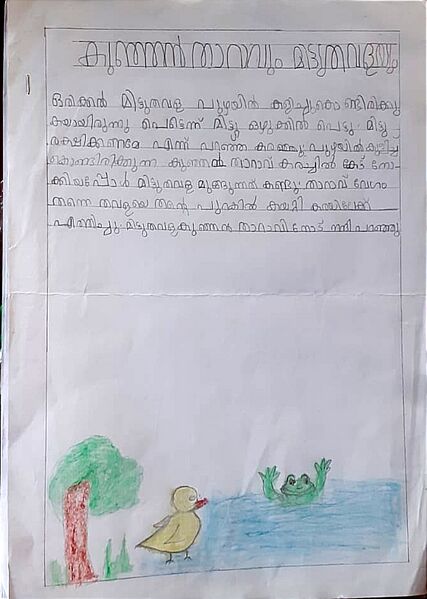 കുഞ്ഞൻ താറാവും മിട്ടുതവളയും
ഒരിക്കൽ മിട്ടുതവള പുഴയിൽ കളിച്ചുകൊണ്ടിരിക്കു
കയായിരുന്നു പെട്ടെന്ന് മിട്ടു ഒഴുക്കിൽ പെട്ടു. മിട്ടു
രക്ഷിക്കണമേ എന്ന് പറഞ്ഞ് കരഞ്ഞു. പുഴയിൽ കുളിച്ചു
കൊണ്ടിരിക്കുന്ന കുഞ്ഞൻ താറാവ് കരച്ചിൽ കേട്ട് നോ-
ക്കിയപ്പോൾ മിട്ടുതവള മുങ്ങുന്നത് കണ്ടു. താറാവ് വേഗം
തന്നെ തവളയെ തന്റെ പുറകിൽ കയറ്റി കരയിലേക്ക്
എത്തിച്ചു. മിട്ടുതവള കുഞ്ഞൻ താറാവിനോട് നന്ദി പറഞ്ഞു